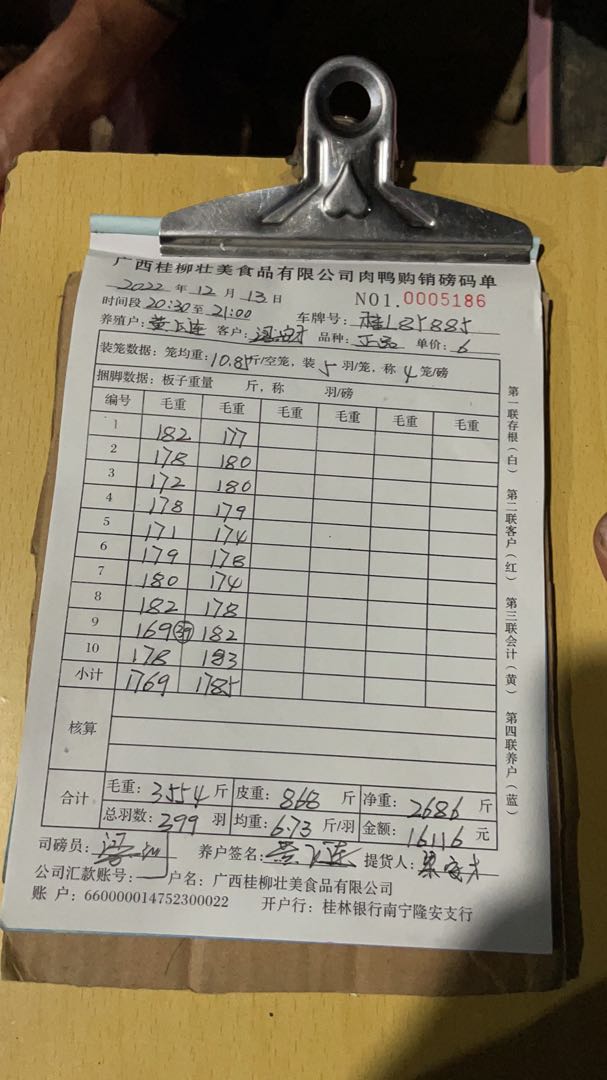 广西桂柳壮美食品有限公司肉鸭购销磅码单
2022 年 12 月 13 日 NO1.0005186
时间段 20:30 至 21:00 车牌号: 桂L85885
养殖户: 黄 连 客户: 品种: 正品 单价: 6
装笼数据: 笼均重: 10.85 斤/空笼, 装 5 羽/笼, 称 4 笼/磅
捆脚数据: 板子重量 斤, 称 羽/磅
编号 毛重 毛重 毛重 毛重 毛重 毛重
1 182 177
2 178 180
3 172 180
4 178 179
5 171 174
6 179 178
7 180 174
8 182 178
9 169 39 182
10 178 183
小计 1769 1785
核算
合计 毛重: 3554 斤 皮重: 868 斤 净重: 2686 斤
总羽数: 399 羽 均重: 6.73 斤/羽 金额: 16116 元
司磅员: 养户签名: 黄 连 提货人: 梁
公司汇款账号: 户名: 广西桂柳壮美食品有限公司
账 户: 660000014752300022 开户行: 桂林银行南宁隆安支行
第一联存根(白) 第二联客户(红) 第三联会计(黄) 第四联养户(蓝)